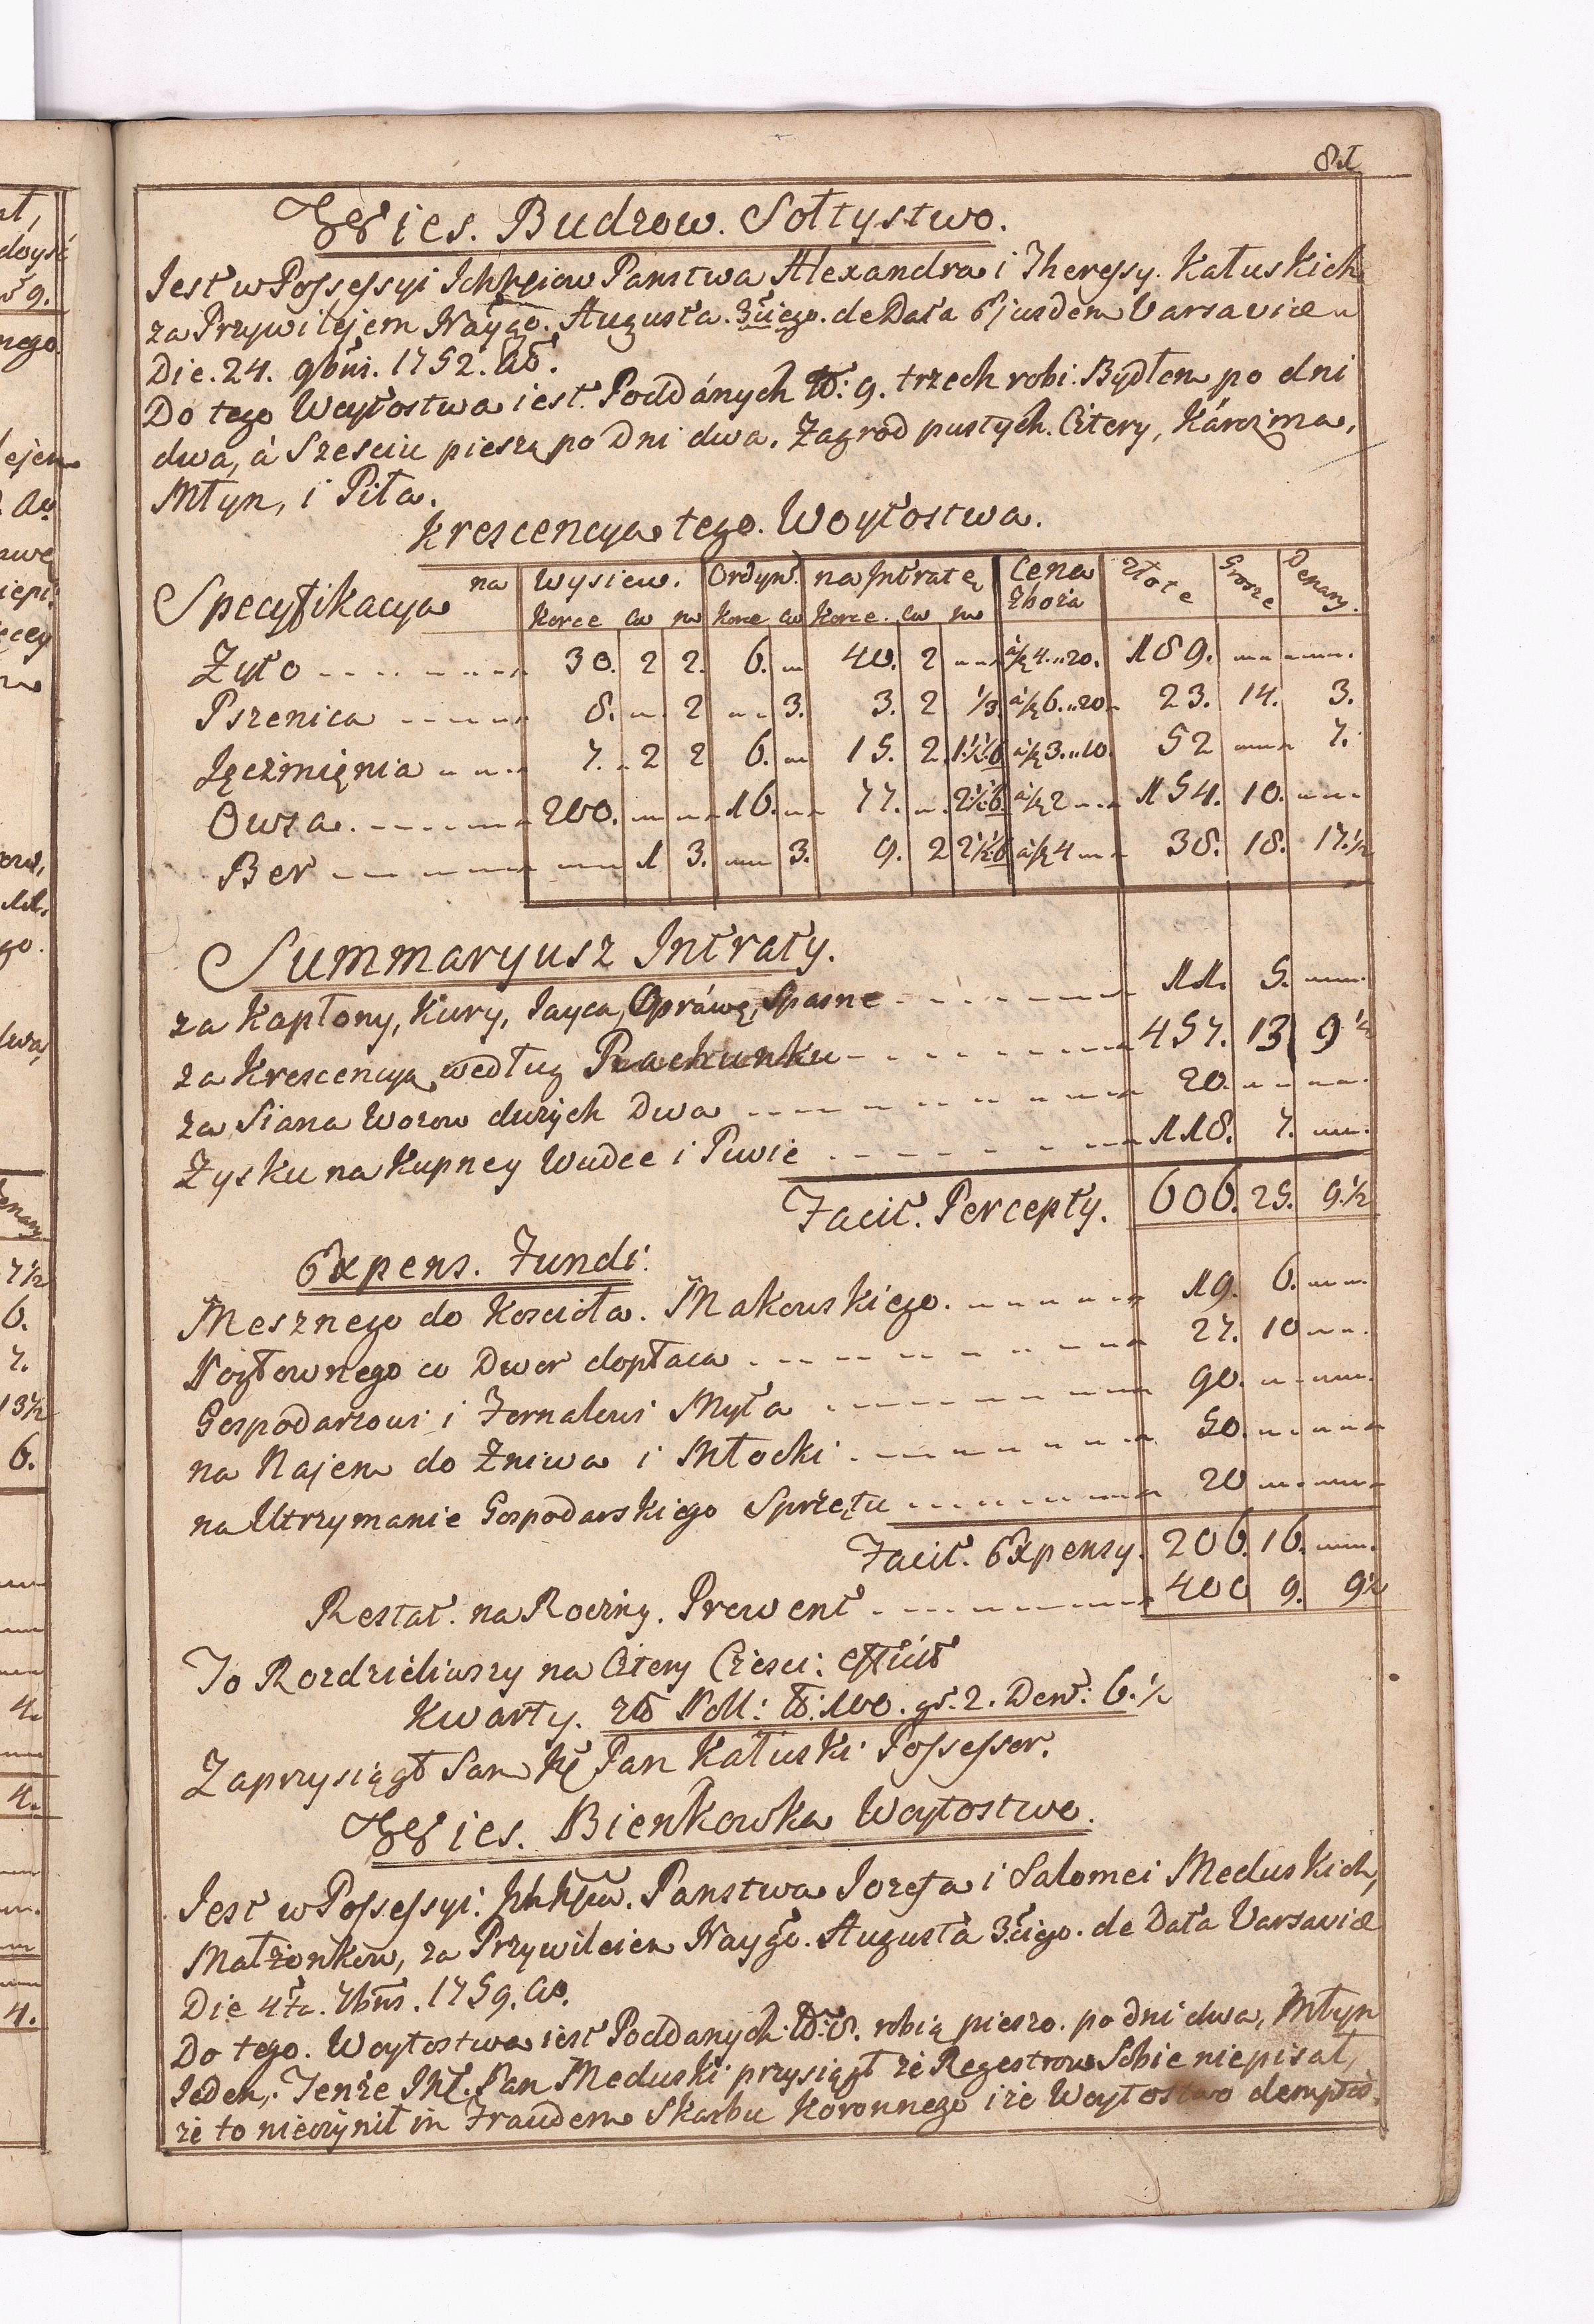 81
Wies. Budzow. Sołtystwo.
Jest w Possessyi Ichmciow Panstwa Alexandra i Theressy. Kałuskich
za Przywilejem Naygo. Augusta. 3ciego. de Data Ejusdem Varsaviæ
Die. 24. 9bris. 1752. Ao.
Do tego Woytostwa iest. Poddánych Nr: 9. trzech robi. Bydłem po dni
dwa, á Szesciu pieszą po Dni dwa. Zagrod pustych. Cztery, Kárczma,
Młyn, i Piła.
Krescencya tego. Woytostwa.
Specyfikacya na Wysiew. Ordyn. na Intratę Cena Zboża Złote Grosze Denary.
Korce cw m Korce cw Korce. cw m
Żyto 30. 2 2. 6. 40. 2 á fl 4..20. 189.
Pszenica 8. 2 3. 3. 2 1/3 á fl 6..20 23. 14. 3.
Jęczmięnia 7. 2 2 6. 15. 2. á fl 3..10. 52 7.
Owsa. 200. 16. 77. á fl 2 154. 10.
Ber 1 3. 3. 9. 2 á fl 4 38. 18. 17.½
Summaryusz Intraty.
za Kapłony, Kury, Jayca, Opráwę, Spasne 11. 5.
za Krescencyą według Rachunku 457. 13 9 ½
za Siana Wozow dużych Dwa 20.
Zysku na Kupney Wudce i Piwie 118. 7.
Facit. Percepty. 606. 25. 9.½
Expens. Fundi.
Mesznego do Koscioła. Makowskiego. 19. 6.
Pogłownego co Dwor dopłaca 27. 10
Gospodarzowi i Fornalowi Myta 90.
na Najem do Żniwa i Młocki 50.
na Utrzymanie Gospodarskiego Sprzętu 20
Facit. Expensy. 206. 16.
Restat. na Roczny. Prowent 400 9. 9½
To Rozdzieliwszy na Cztery Części: efficit
Kwarty. Poll: fl: 100. gr. 2. Den: 6.½
Zaprzysiągł Sam Pan Kałuski Possessor.
Wies. Bienkowka Woytostwo.
Jest w Possessyi. Panstwa Jozefa i Salomei Meduskich,
Małżonkow, za Przywileiem Naygo. Augusta 3ciego. de Data Varsaviæ
Die 4ta. 7bris. 1759. Ao.
Do tego. Woytostwa iest Poddanych. Nr: 8. robią pieszo. po dni dwa, Młyn
Jeden,. Tenże Pan Meduski przysiągł że Regestrow Sobie niepisał,
że to nieczynił in Fraudem Skarbu Koronnego i że Woytostwo dempto.